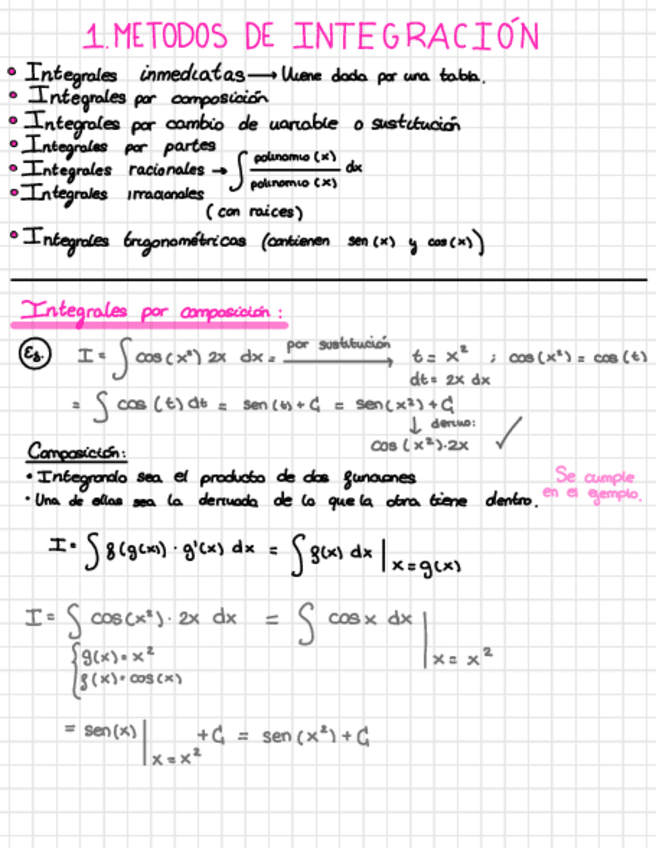 1. METODOS DE INTEGRACIÓN
• Integrales inmediatas → Viene dada por una tabla.
• Integrales por composición
• Integrales por cambio de variable o sustitución
• Integrales por partes
• Integrales racionales → ∫ polinomio (x) / polinomio (x) dx
• Integrales irracionales
(con raices)
• Integrales trigonométricas (contienen sen(x) y cos(x))
Integrales por composición:
Ej. I = ∫ cos(x²) 2x dx = por sustitución → t = x² ; cos(x²) = cos(t)
dt = 2x dx
= ∫ cos (t) dt = sen(t) + C = sen(x²) + C
↓ derivo:
cos (x²)·2x ✓
Composición:
• Integrando sea el producto de dos funciones
• Una de ellas sea la derivada de la que la otra tiene dentro.
Se cumple
en el ejemplo.
I = ∫ f(g(x)) · g'(x) dx = ∫ f(x) dx | x = g(x)
I = ∫ cos(x²) · 2x dx = ∫ cos x dx | x = x²
{ g(x) = x²
f(x) = cos(x)
= sen(x) | x = x² + C = sen(x²) + C